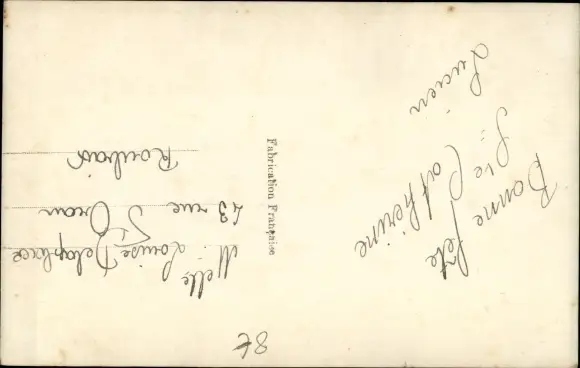 Bonne fête
Ste Catherine
Lucien
Fabrication Française
Melle
Louise Delaplace
43 rue d'Oran
Roubaix
8€